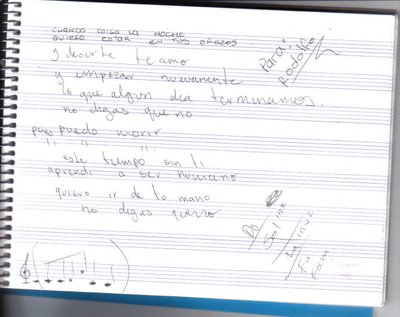 CUANDO CAIGA LA NOCHE
QUIERO ESTAR EN TUS BRAZOS
y decirte te amo
y empezar nuevamente
lo que algun dia terminamos.
no digas que no
pues puedo morir
" " "
este tiempo sin ti
aprendi a ser humano
quiero ir de tu mano
no degas que no
Para:
Rodolfo
Do
Sol inv
La inv
Fa
Fam